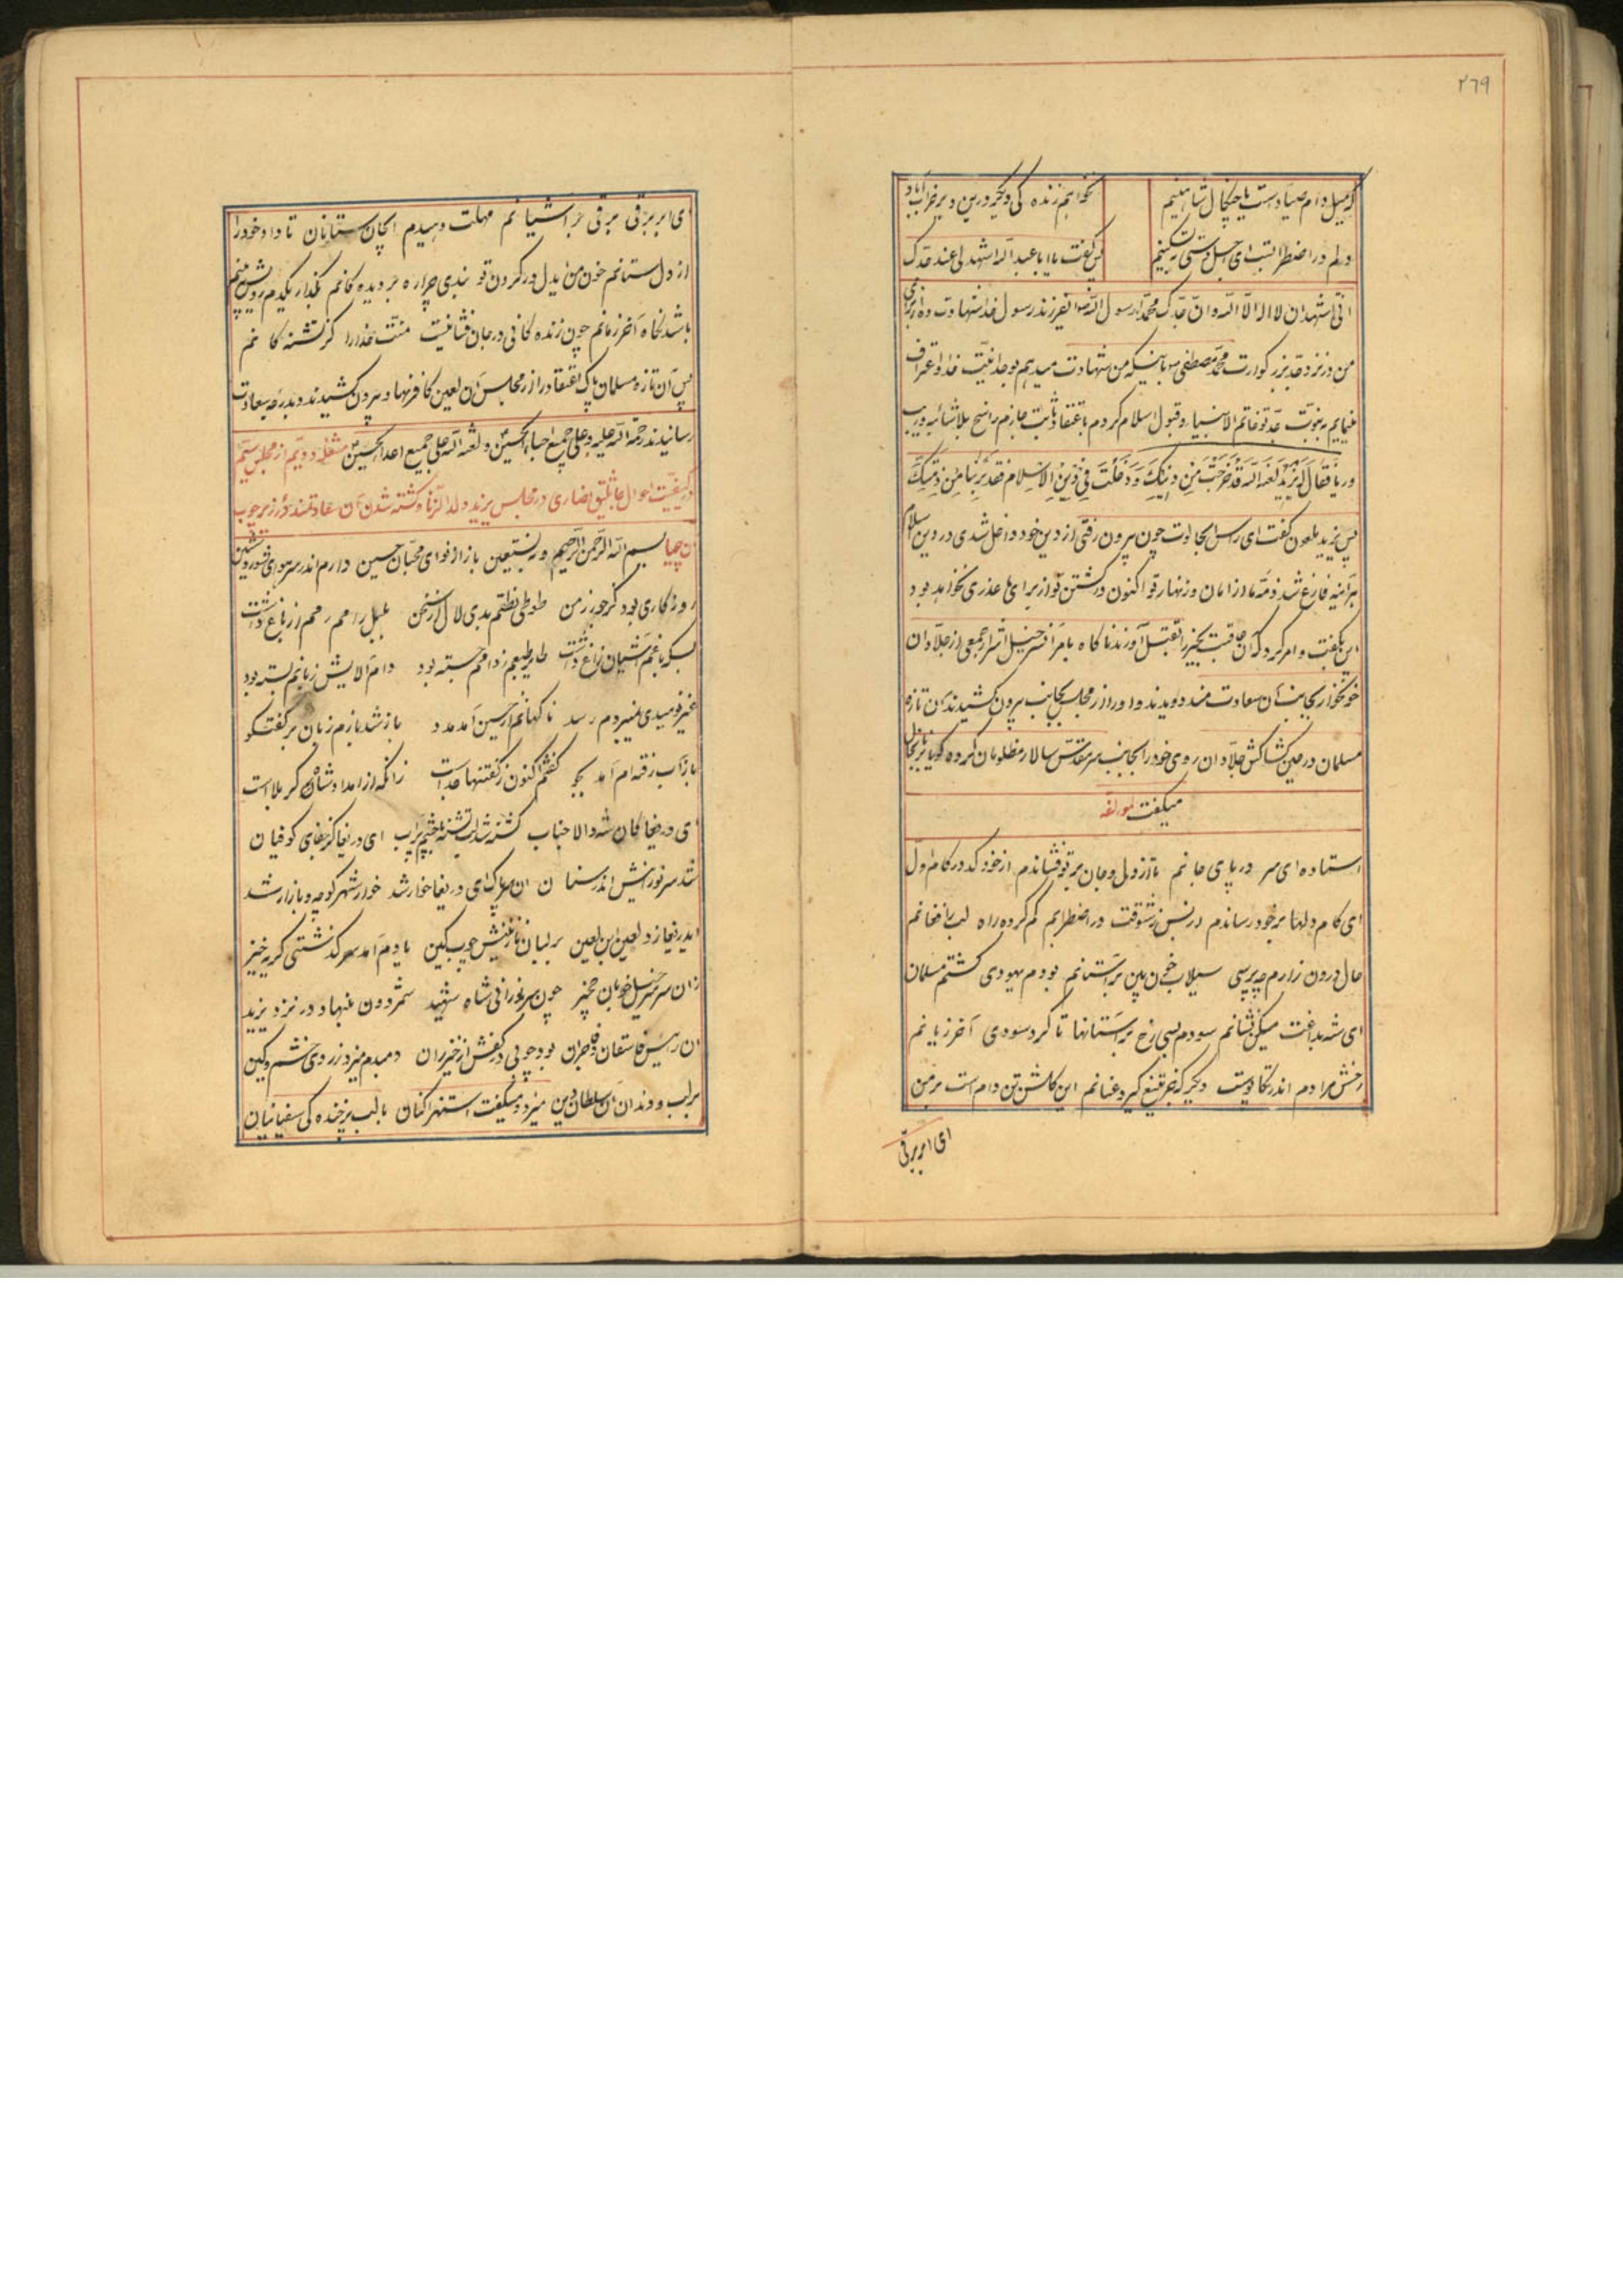 ٢٦٩
که میل دام صیاد است یا چنگال شاهینم
نخواهم زنده‌گی دیگر درین دیر خراب آباد
دلم در اضطرابست ای اجل
پس گفت یا ابا عبد الله اشهد لی عند جدک
انی اشهد ان لا اله الا الله و ان جدک محمدا رسول الله سوا ایفرزند رسول خدا شهادت ده از برای
من در نزد جد بزرگوارت محمد مصطفی ص باینکه من شهادت میدهم بوحدانیت خدا و اعتراف
مینمایم به نبوت جد تو خاتم الانبیا و قبول اسلام کردم باعتقاد ثابت جازم راسخ بلا شائبه و ریب
و ریا فقال یزید لعنه الله قد خرجت من دینک و دخلت فی دین الاسلام فقد برئنا من ذمتک
پس یزید ملعون گفت ای راس الجالوت چون بیرون رفتی از دین خود و داخل شدی در دین اسلام
هر آینه فارغ شد ذمه ما از امان و زنهار تو اکنون در کشتن تو از برای ما عذری نخواهد بود
این بگفت و امر کرد که آن عاقبت بخیر را بقتل آورند ناگاه بامر آن سرخیل اشرار جمعی از جلادان
خونخوار بجانب آن سعادت مند دویدند و او را از مجلس بجانب بیرون کشیدند آن تازه
مسلمان در حین کشاکش جلادان روی خود را بجانب سر مقدس سالار مظلومان کرده گویا بزبانحال
میگفت لمؤلفه
استاده ای سر در پای جانم تا از دل و جان بر تو فشاندم از خود که در کام اول
ای کام دلها بر خود رساندم از بس ز شوقت در اضطرابم گم کرده راه لب با فغانم
حال درون زارم چه پرسی سیلاب خون بین بر آستانم بودم یهودی گشتم مسلمان
ای شه بداغت میکن نشانم سودم بسی رخ بر آستانها تا کرد سودی آخر زیانم
رخش مرادم اندر تکاپوست دیگر که جز تیغ گیرد عنانم این گلشن تن دام است بر من
ای ابر برقی
ای ابر برقی برقی بر آشیانم مهلت دهیدم ایجان ستانان تا داد خود را
از دل ستانم خون من ایدل در گردن تو بندی چرا ره بر دیده‌گانم بگذار یکدم رویش ببینم
باشد نگاه آخر زمانم چون زنده‌گانی در جان فشانیست منت خدا را کز کشته‌گانم
پس آن تازه مسلمان پاک اعتقاد را از مجلس آن لعین کافر نهاد بیرون کشیدند و بدرجه سعادت
رسانیدند رحمة الله علیه و علی جمیع احباء الحسین و لعنة الله علی جمیع اعداء الحسین مشعله دویم از مجلس سیم
در کیفیت احوال جاثلیق نصاری در مجلس یزید ولد الزنا و کشته شدن آن سعادتمند در زیر چوب
آن بیحیا بسم الله الرحمن الرحیم و به نستعین باز از فوای محبان حسین دارم اندر سر هوای شور و شین
روزگاری بود کز جور زمن طوطی نطقم بدی لال از سخن بلبل رامم رمم از باغ داشت
بسکه باغم آشیان زاغ داشت طایر طبعم ز دامم جسته بود دام آلایش زبانم بسته بود
غیر نومیدی نمیبردم رسد ناگهانم از حسین آمد مدد باز شد بازم زبان بر گفتگو
باز آب رفته‌ام آمد بجو گفتم اکنون ز گفتنها جداست زانکه از امداد شاه کربلا است
ای دریغا کان شه والا جناب کشته شد لب تشنه با چشم پر آب ای دریغا کز جفای کوفیان
شد سر نورانیش اندر سنان آن سر پاک ای دریغا خوار شد خوار شهر کوچه و بازار شد
ایدریغا زد لعین ابن لعین بر لبان نازنینش چوب کین یادم آمد سرگذشتی گریه خیز
زان سر سرخیل خوبان چون سر نورانی شاه شهید شمر دون بنهاد در نزد یزید
آن رئیس فاسقان و فاجران بود چوبی در کفش از خیزران دمبدم میزد ز روی خشم و کین
بر لب و دندان آن سلطان دین میزد و میگفت استهزا کنان با لب پر خنده‌گی سفیانیان